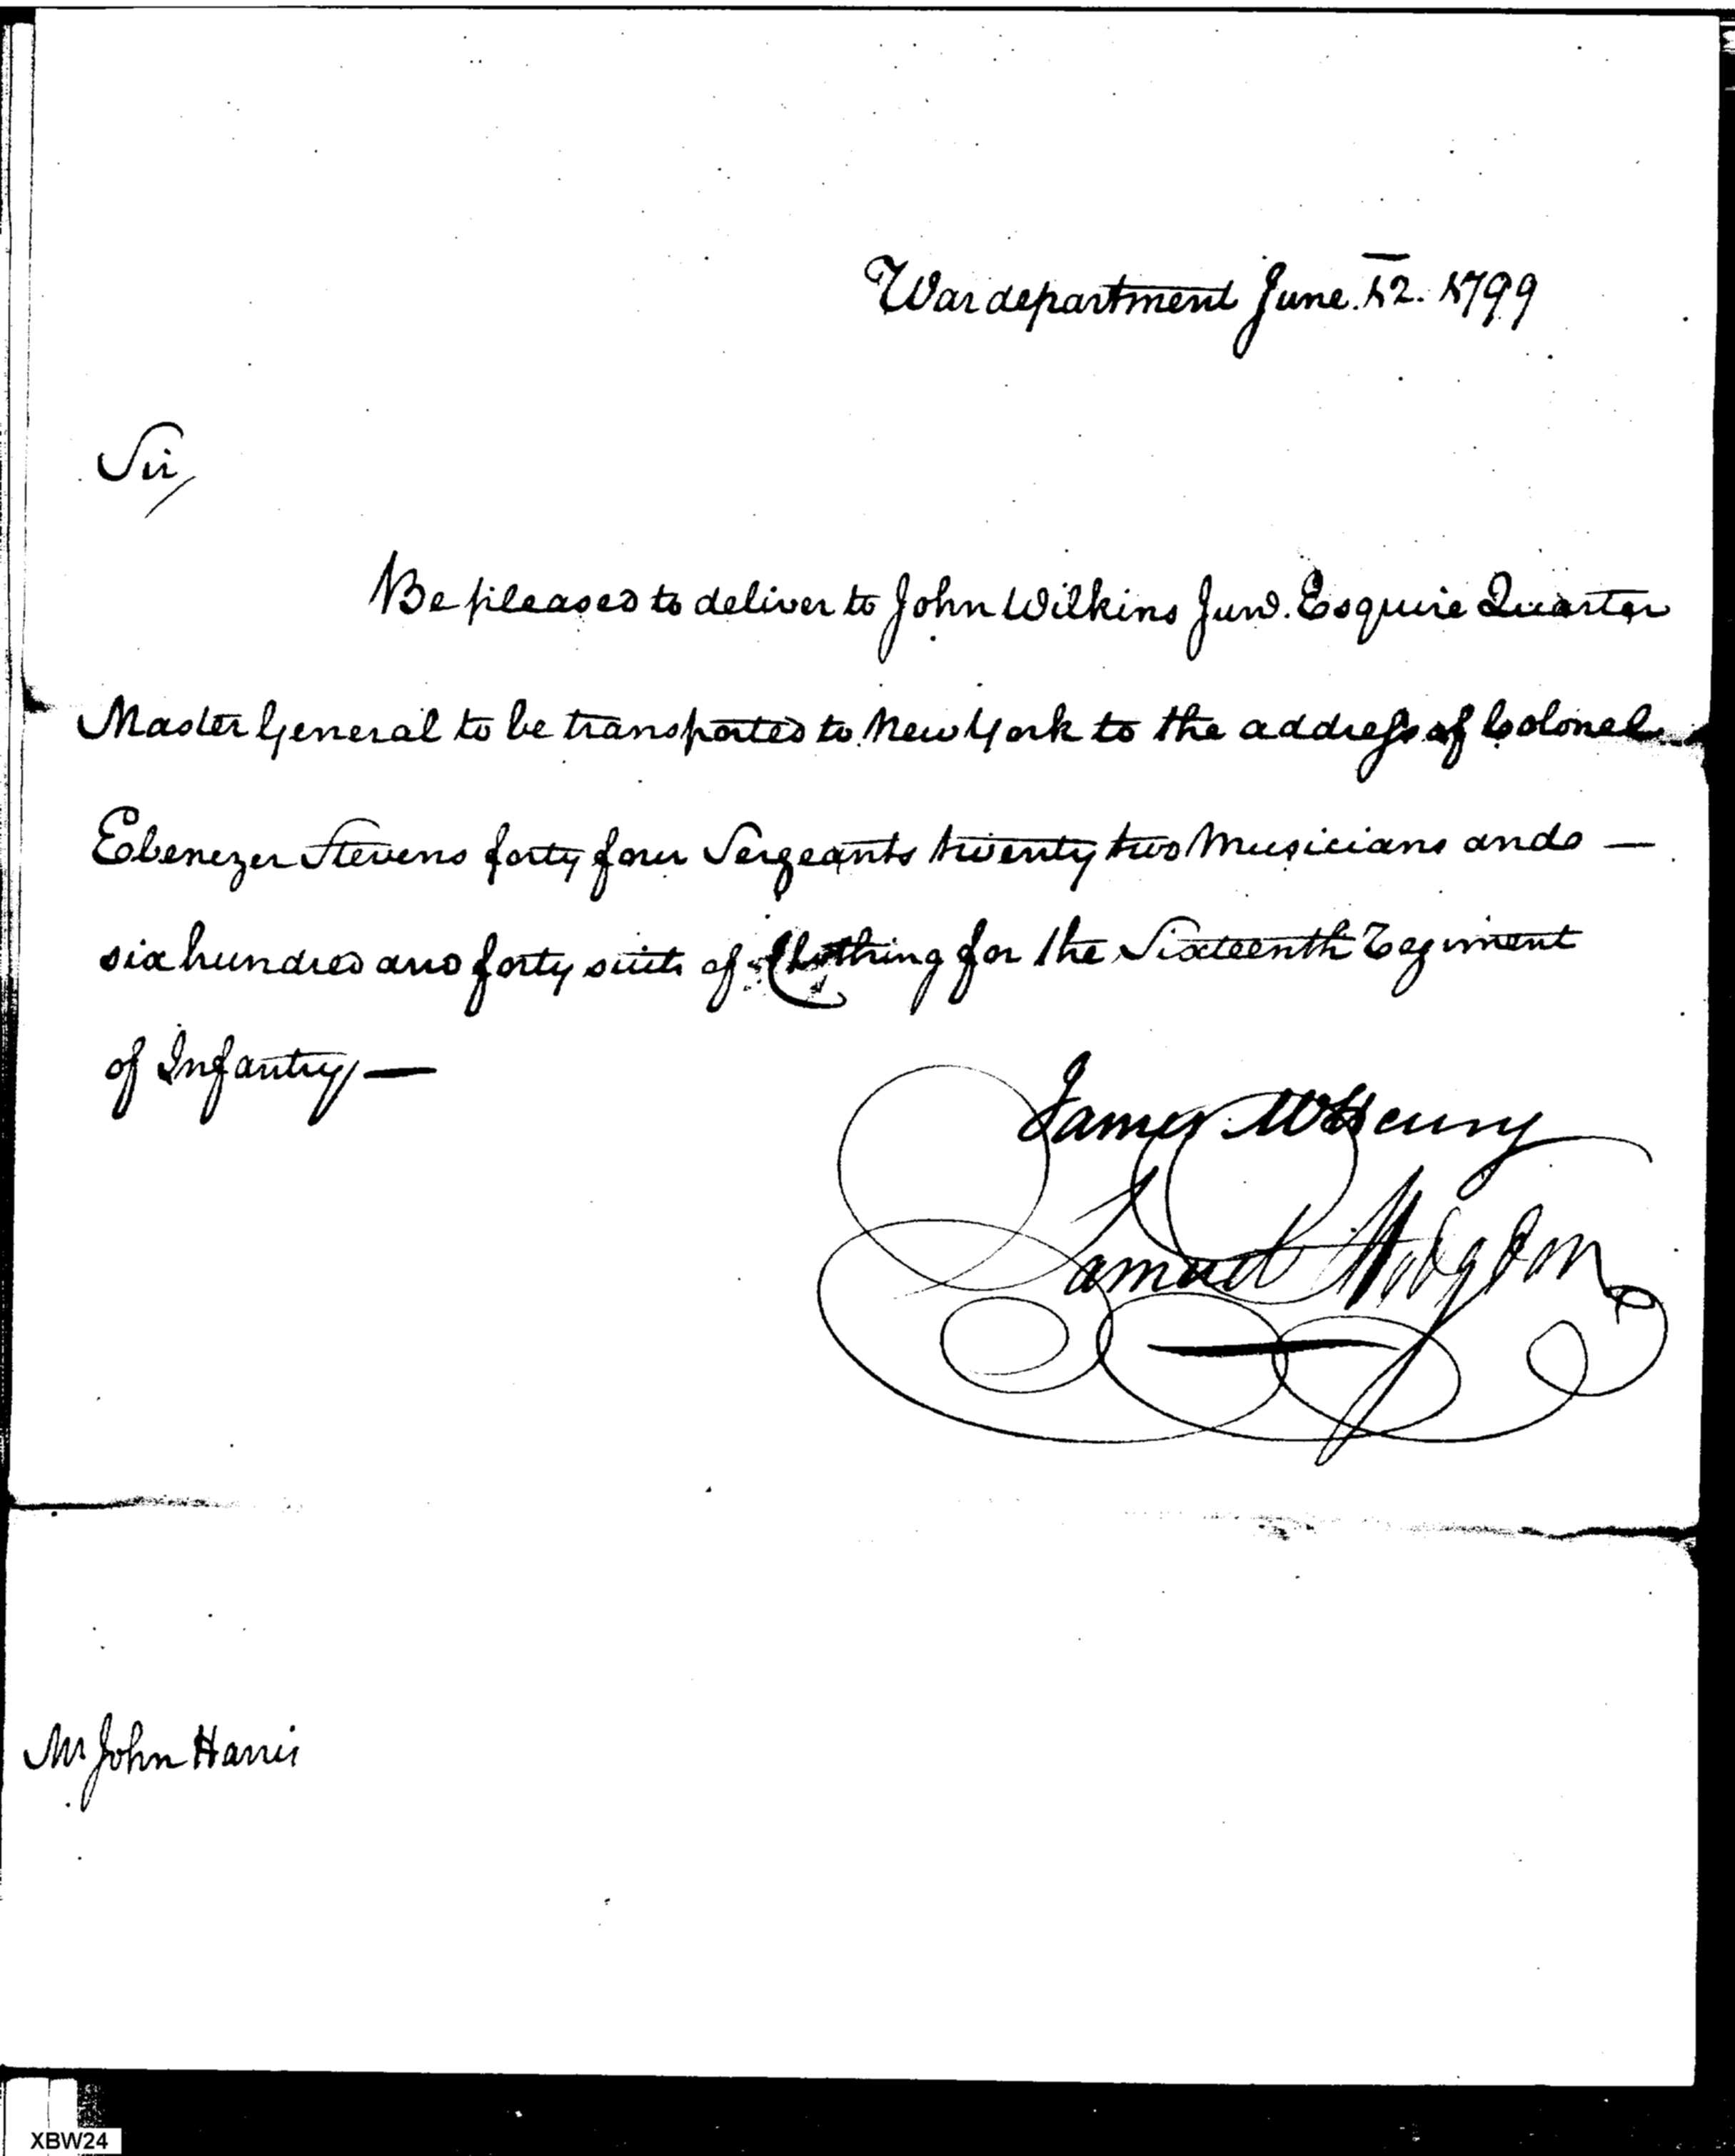 War department June. 12. 1799
Sir,
Be pleased to deliver to John Wilkins Junr. Esquire Quarter
Master General to be transported to New York to the address of Colonel
Ebenezer Stevens forty four Sergeants twenty two Musicians and —
six hundred and forty suits of Clothing for the Sixteenth Regiment
of Infantry, —
James McHenry
Samuel Hodgdon
Mr John Harris
XBW24